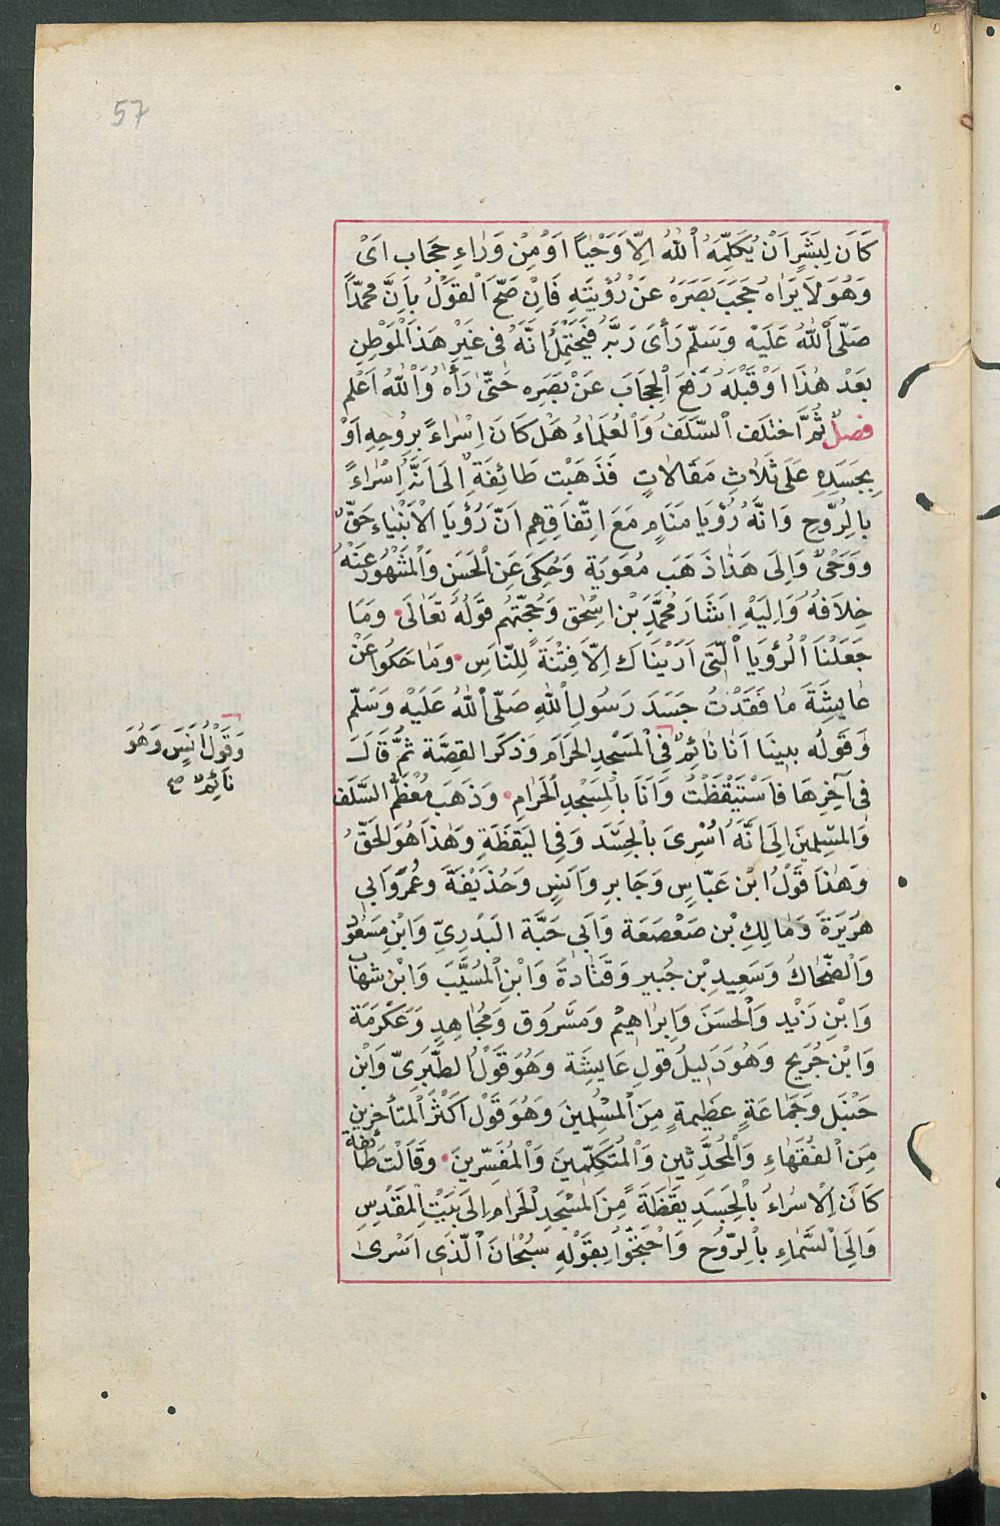 57
كَانَ لِبَشَرٍ اَنْ يُكَلِّمَهُ ٱللّٰهُ اِلَّا وَحْيًا اَوْ مِنْ وَرَاءِ حِجَابٍ اَىْ
وَهُوَ لَا يَرَاهُ حَجَبَ بَصَرَهُ عَنْ رُؤْيَتِهِ فَاِنْ صَحَّ الْقَوْلُ بِاَنَّ مُحَمَّدًا
صَلَّى ٱللّٰهُ عَلَيْهِ وَسَلَّمَ رَأَى رَبَّهُ فَيَحْتَمِلُ اَنَّهُ فِى غَيْرِ هَذَا الْمَوْطِنِ
بَعْدَ هٰذَا اَوْ قَبْلَهُ رَفَعَ الْحِجَابَ عَنْ بَصَرِهِ حَتّٰى رَأَهُ وَٱللّٰهُ اَعْلَم
فصل ثُمَّ اخْتَلَفَ السَّلَفُ وَالْعُلَمَاءُ هَلْ كَانَ اِسْرَاءً بِرُوحِهِ اَوْ
بِجَسَدِهِ عَلَى ثَلَاثِ مَقَالَاتٍ فَذَهَبَتْ طَائِفَةٌ اِلَى اَنَّهُ اِسْرَاءً
بِالرُّوحِ وَاَنَّهُ رُؤْيَا مَنَامٍ مَعَ اتِّفَاقِهِمْ اَنَّ رُؤْيَا الْاَنْبِيَاءِ حَقٌّ
وَوَحْىٌ وَاِلَى هَذَا ذَهَبَ مُعٰوِيَةُ وَحُكِىَ عَنِ الْحَسَنِ وَالْمَشْهُورُ عَنْهُ
خِلَافَهُ وَاِلَيْهِ اَشَارَ مُحَمَّدُ بْنُ اِسْحٰقَ وَحُجَّتُهُمْ قَوْلُهُ تَعَالَى وَمَا
جَعَلْنَا الرُّؤْيَا الَّتِى اَرَيْنَاكَ اِلَّا فِتْنَةً لِلنَّاسِ وَمَا حَكَوْا عَنْ
عَايِشَةَ مَا فَقَدْتُ جَسَدَ رَسُولِ ٱللّٰهِ صَلَّى ٱللّٰهُ عَلَيْهِ وَسَلَّم
وَقَوْلُهُ بَيْنَا اَنَا نَائِمٌ فِى الْمَسْجِدِ الْحَرَامِ وَذَكَرَ الْقِصَّةَ ثُمَّ قَالَ
فِى آخِرِهَا فَاسْتَيْقَظْتُ وَاَنَا بِالْمَسْجِدِ الْحَرَامِ وَذَهَبَ مُعْظَمُ السَّلَفِ
وَالْمُسْلِمِينَ اِلَى اَنَّهُ اُسْرِىَ بِالْجَسَدِ وَفِى الْيَقَظَةِ وَهٰذَا هُوَ الْحَقُّ
وَهٰذَا قَوْلُ ابْنِ عَبَّاسٍ وَجَابِرٍ وَاَنَسٍ وَحُذَيْفَةَ وَعُمَرَ وَاَبِى
هُرَيْرَةَ وَمَالِكِ بْنِ صَعْصَعَةَ وَاَبِى حَبَّةَ الْبَدْرِىِّ وَابْنِ مَسْعُودٍ
وَالضَّحَّاكُ وَسَعِيدِ بْنِ جُبَيْرٍ وَقَتَادَةُ وَابْنِ الْمُسَيَّبِ وَابْنِ شِهَابٍ
وَابْنِ زَيْدٍ وَالْحَسَنِ وَاِبْرَاهِيمَ وَمَسْرُوقٍ وَمُجَاهِدٍ وَعَكْرَمَةَ
وَابْنِ جُرَيْجٍ وَهُوَ دَلِيلُ قَوْلِ عَايِشَةَ وَهُوَ قَوْلُ الطَّبَرِىِّ وَابْنِ
حَنْبَلٍ وَجَمَاعَةٍ عَظِيمَةٍ مِنَ الْمُسْلِمِينَ وَهُوَ قَوْلُ اَكْثَرِ الْمُتَأَخِّرِينَ
مِنَ الْفُقَهَاءِ وَالْمُحَدِّثِينَ وَالْمُتَكَلِّمِينَ وَالْمُفَسِّرِينَ وَقَالَتْ طَائِفَةٌ
كَانَ الْاِسْرَاءُ بِالْجَسَدِ يَقَظَةً مِنَ الْمَسْجِدِ الْحَرَامِ اِلَى بَيْتِ الْمَقْدِسِ
وَاِلَى السَّمَاءِ بِالرُّوحِ وَاحْتَجُّوا بِقَوْلِهِ سُبْحَانَ الَّذِى اَسْرٰى
وَقَوْلُ اَنَسٍ وَهُوَ
نَائِمٌ صح